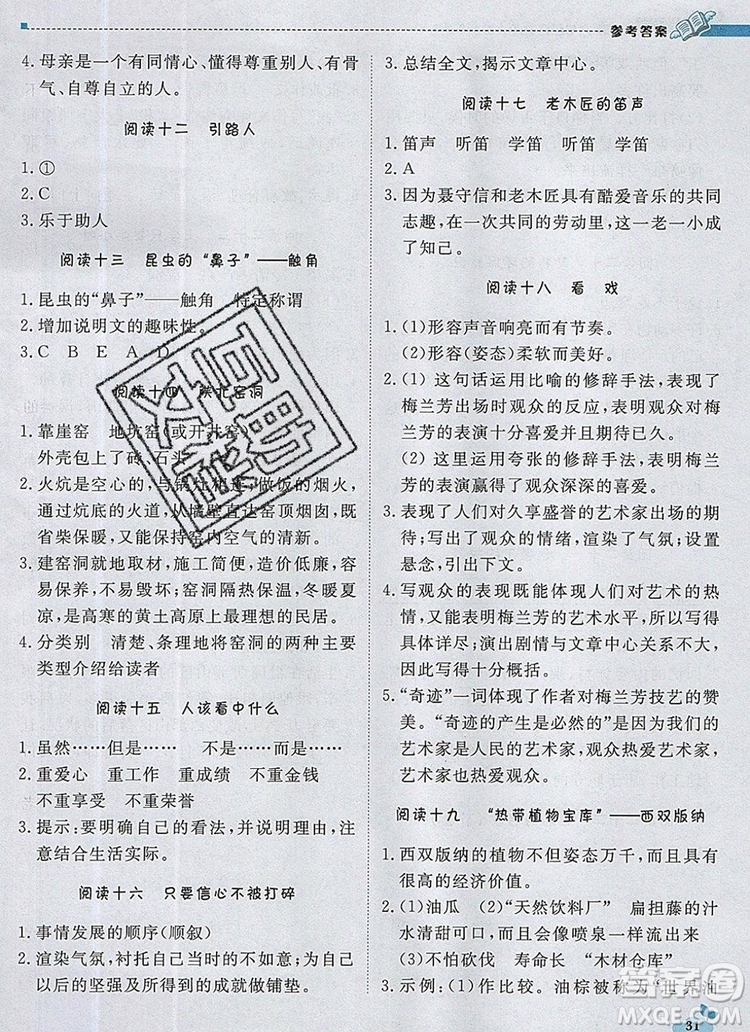 参考答案
4. 母亲是一个有同情心、懂得尊重别人、有骨
气、自尊自立的人。
阅读十二 引路人
1. ①
2. C
3. 乐于助人
阅读十三 昆虫的“鼻子”——触角
1. 昆虫的“鼻子”——触角 特定称谓
2. 增加说明文的趣味性。
3. C B E A D
阅读十四 陕北窑洞
1. 靠崖窑 地坑窑(或开井窑)
外壳包上了砖、石头
2. 火炕是空心的,与锅灶相连;做饭的烟火,
通过炕的火道,从墙壁直达窑顶烟囱,既
省柴保暖,又能保障窑内空气的清新。
3. 建窑洞就地取材,施工简便,造价低廉,容
易保养,不易毁坏;窑洞隔热保温,冬暖夏
凉,是高寒的黄土高原上最理想的民居。
4. 分类别 清楚、条理地将窑洞的两种主要
类型介绍给读者
阅读十五 人该看中什么
1. 虽然……但是…… 不是……而是……
2. 重爱心 重工作 重成绩 不重金钱
不重享受 不重荣誉
3. 提示:要大胆写自己的看法,并说明理由,
要结合生活实际。
阅读十六 只要信心不被打碎
1. 事情发展的顺序(顺叙)
2. 渲染气氛,衬托自己当时的不自信,也为自
己以后的坚强及所得到的成就做铺垫。
3. 总结全文,揭示文章中心。
阅读十七 老木匠的笛声
1. 笛声 听笛 学笛 听笛 学笛
2. A
3. 因为聂守信和老木匠具有酷爱音乐的共同
志趣,在一次共同的劳动里,这一老一小成
了知己。
阅读十八 看 戏
1. (1)形容声音响亮而有节奏。
(2)形容(姿态)柔软而美好。
2. (1)这句话运用比喻的修辞手法,表现了
梅兰芳出场时观众的反应,表现观众对梅
兰芳的表演十分喜爱并期待已久。
(2)这句话运用夸张的修辞手法,写出梅兰
芳的表演赢得了观众深深的喜爱。
3. 表现了人们对久享盛誉的艺术家出场的期
待;写出了观众的情绪,渲染了气氛;设置
悬念,引出下文。
4. 写观众的表现能体现人们对艺术的热
情,侧面烘托梅兰芳的艺术水平,所以写得
具体详尽;演出剧情与文章中心关系不大,
因而写得十分概括。
5. “奇迹”一词体现了作者对梅兰芳技艺的赞
美。“奇迹的产生是必然的”,因为我们的
艺术家是人民的艺术家,观众热爱艺术家,
艺术家也热爱观众。
阅读十九 “热带植物宝库”——西双版纳
1. 西双版纳的植物不但姿态万千,而且有很
高的经济价值。
2. (1)油瓜 (2)“天然饮料厂” 扁担藤的汁
水清甜可口,而且会像喷泉一样喷射出来
(3)不怕砍伐 寿命长 “木材仓库”
3. 示例:(1)作比较。油棕被称为“世界油
31
互助文档
答案圈
MXQE.COM